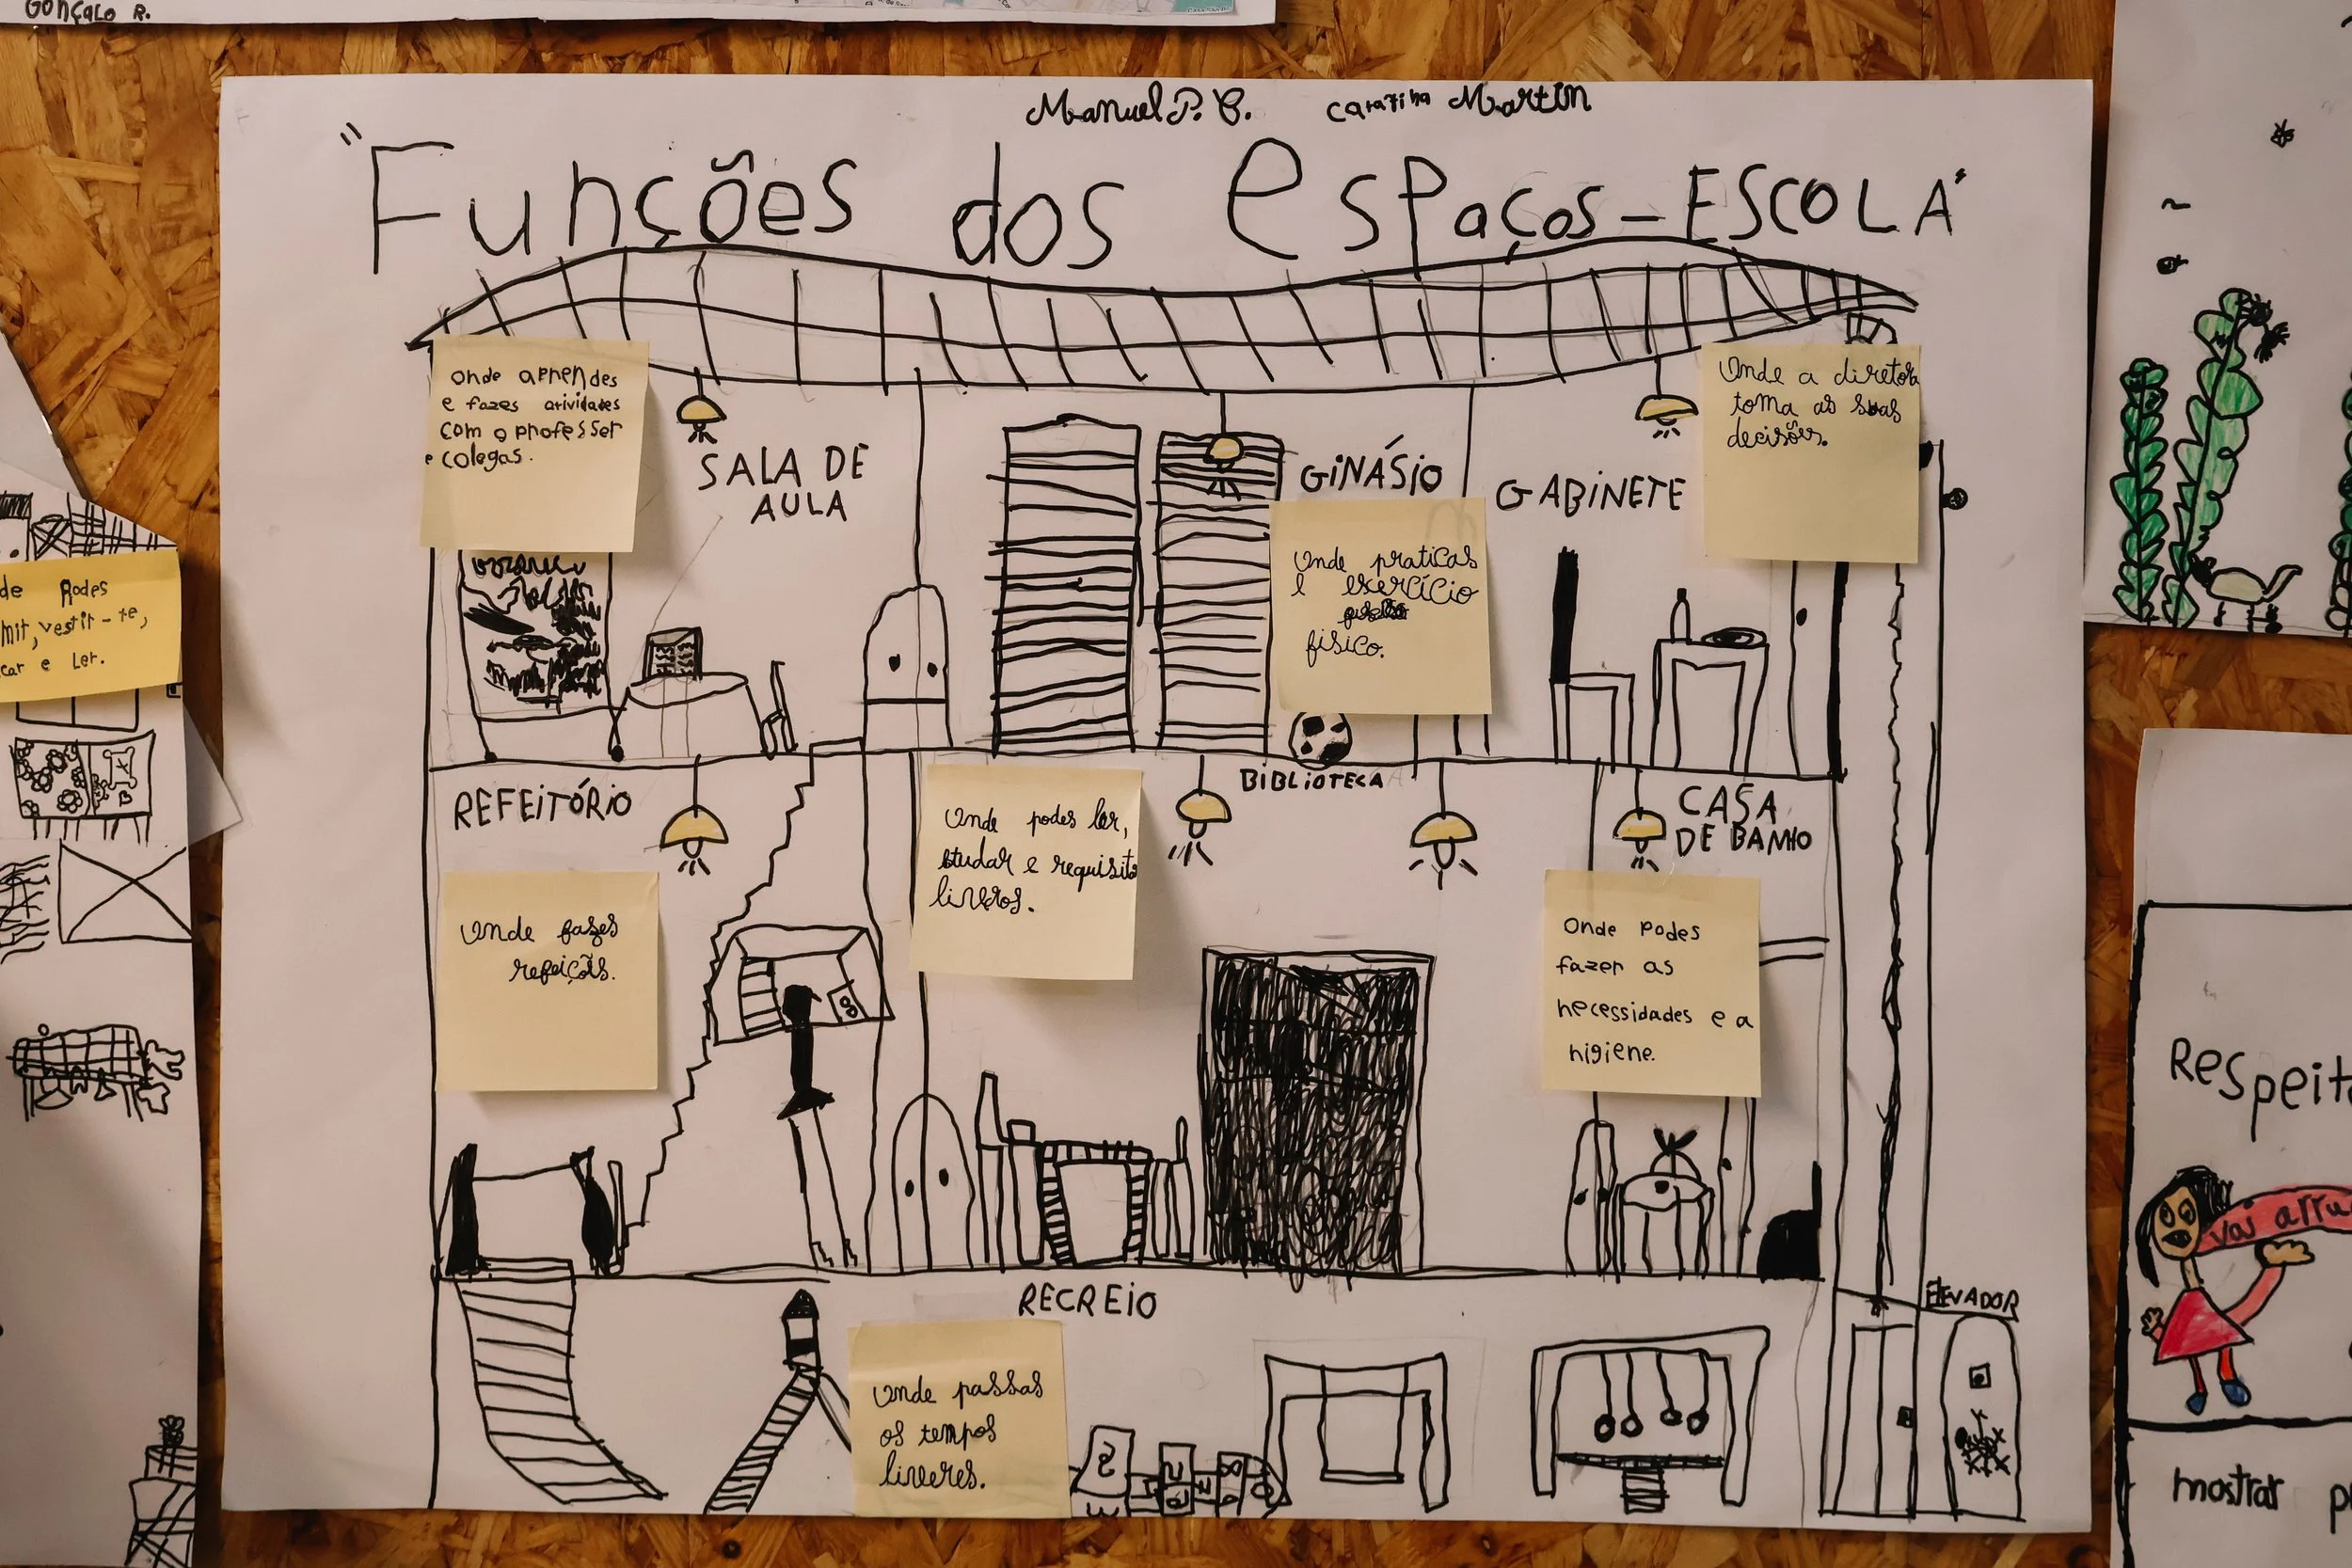 Gonçalo R.
Manuel P. C. Carolina Martin
"Funções dos espaços - ESCOLA"
Onde aprendes
e fazes atividades
com o professer
e colegas.
SALA DE
AULA
GINÁSIO
Onde praticas
exercício
fisico.
GABINETE
Onde a diretora
toma as suas
decisões.
REFEITÓRIO
Onde fazes
refeições.
BIBLIOTECA
Onde podes ler,
studar e requisita
livros.
CASA
DE BANHO
Onde Podes
fazer as
necessidades e a
higiene.
RECREIO
Onde passas
os tempos
livres.
ELEVADOR
de Podes
mir, vestir-te,
car e Ler.
Respeit
vai arru
mostrar p